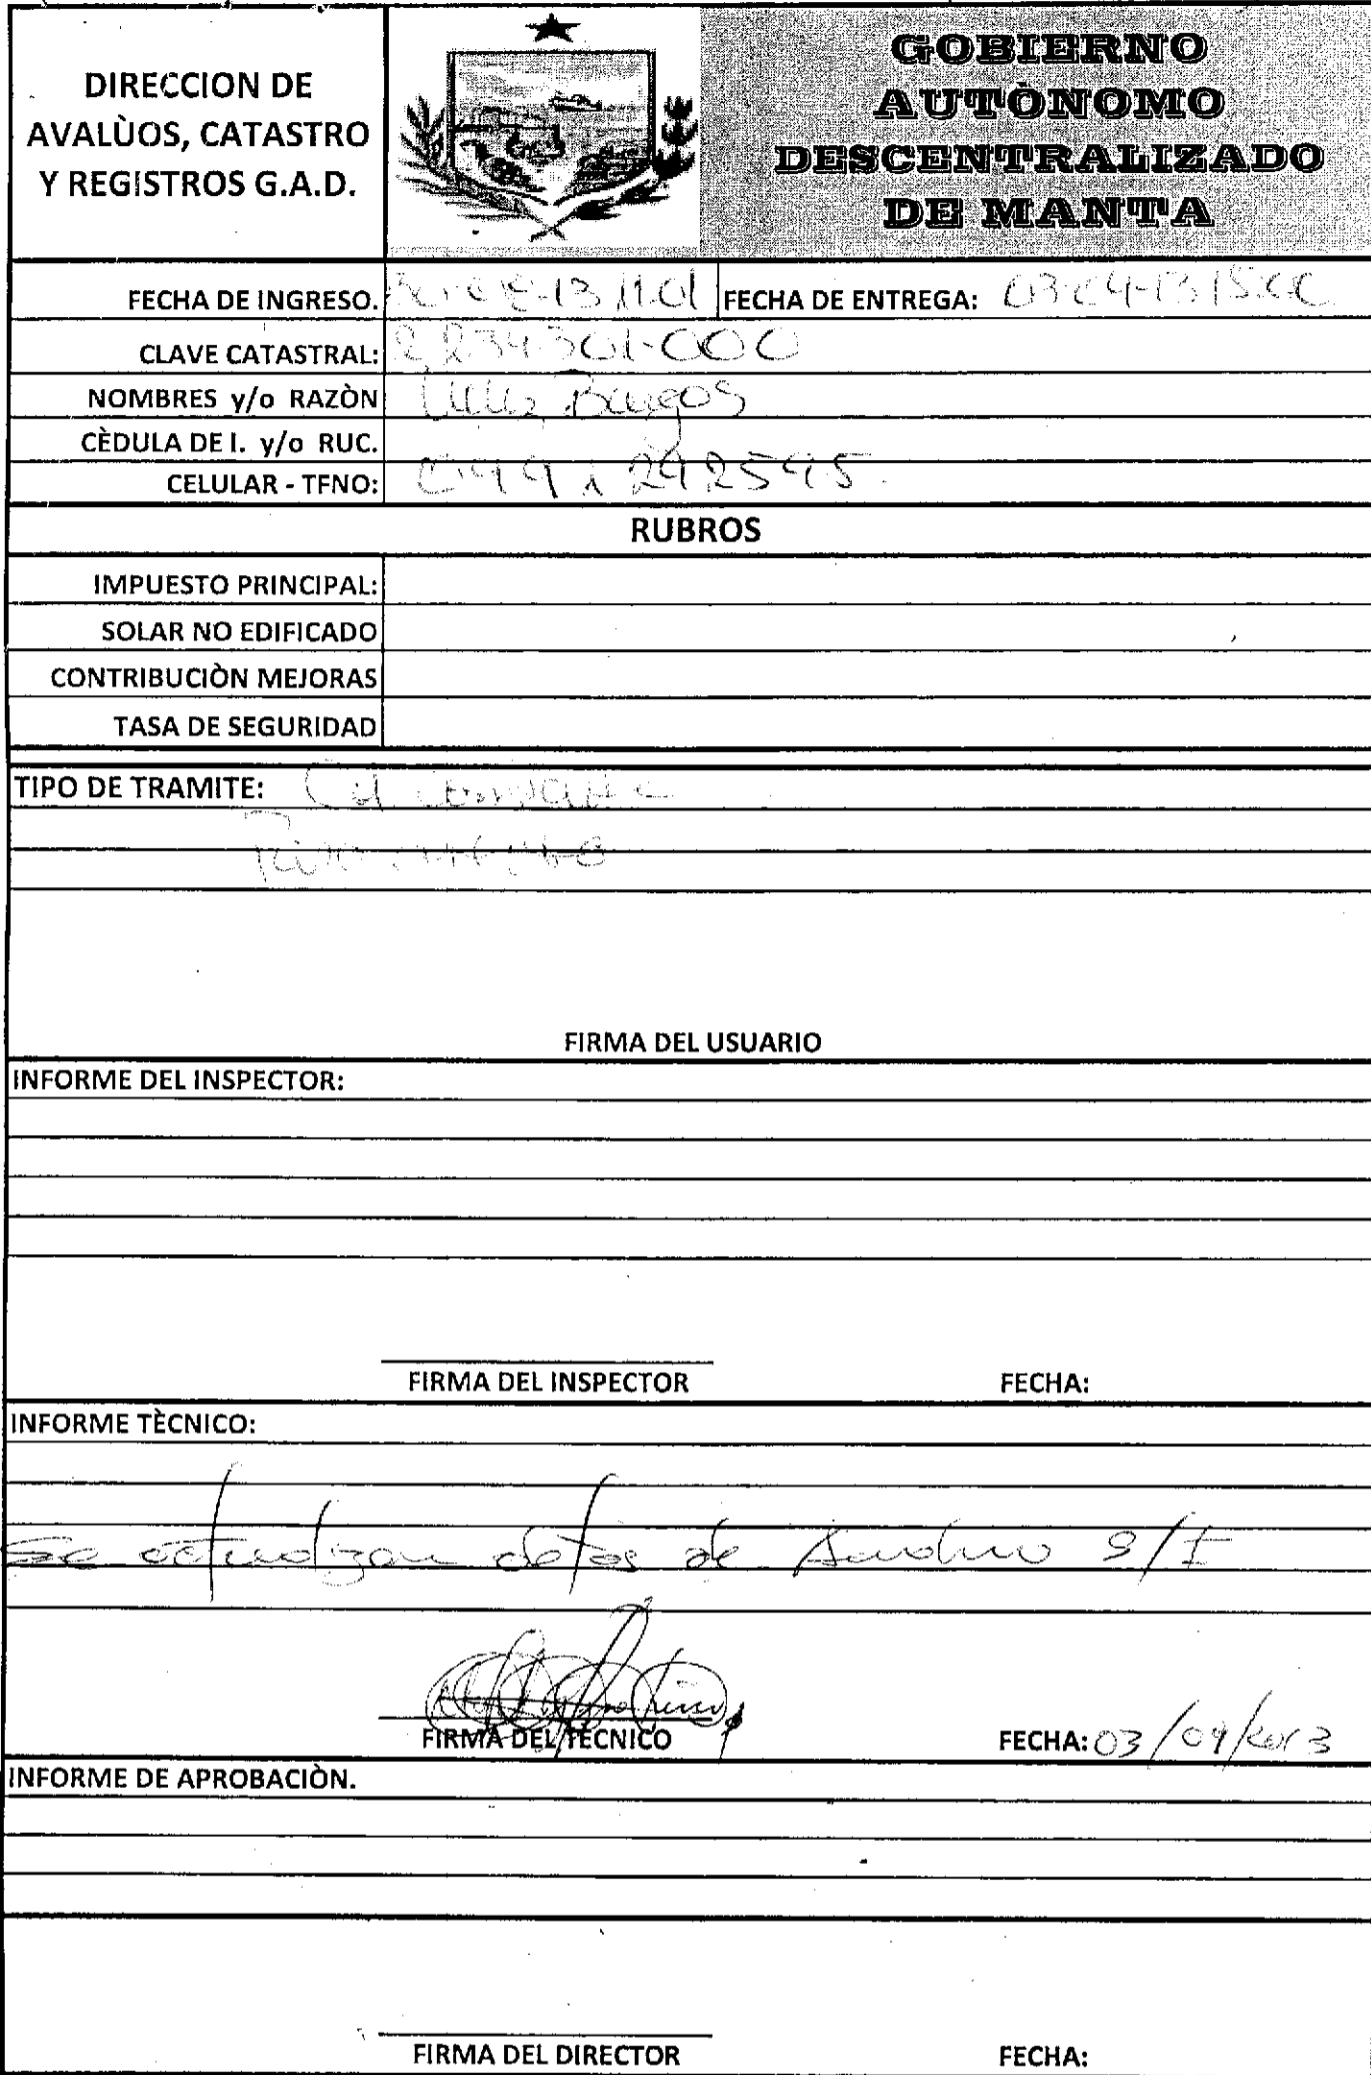 DIRECCION DE
AVALÙOS, CATASTRO
Y REGISTROS G.A.D.
GOBIERNO
AUTÒNOMO
DESCENTRALIZADO
DE MANTA
FECHA DE INGRESO. 13 11:01 FECHA DE ENTREGA: 03-04-13 15:00
CLAVE CATASTRAL: 2234301-000
NOMBRES y/o RAZÒN Burgos
CÈDULA DE I. y/o RUC.
CELULAR - TFNO:
RUBROS
IMPUESTO PRINCIPAL:
SOLAR NO EDIFICADO
CONTRIBUCIÒN MEJORAS
TASA DE SEGURIDAD
TIPO DE TRAMITE:
FIRMA DEL USUARIO
INFORME DEL INSPECTOR:
FIRMA DEL INSPECTOR FECHA:
INFORME TÈCNICO:
Se actualizan datos de S/I
FIRMA DEL TÈCNICO FECHA: 03/04/2013
INFORME DE APROBACIÒN.
FIRMA DEL DIRECTOR FECHA: